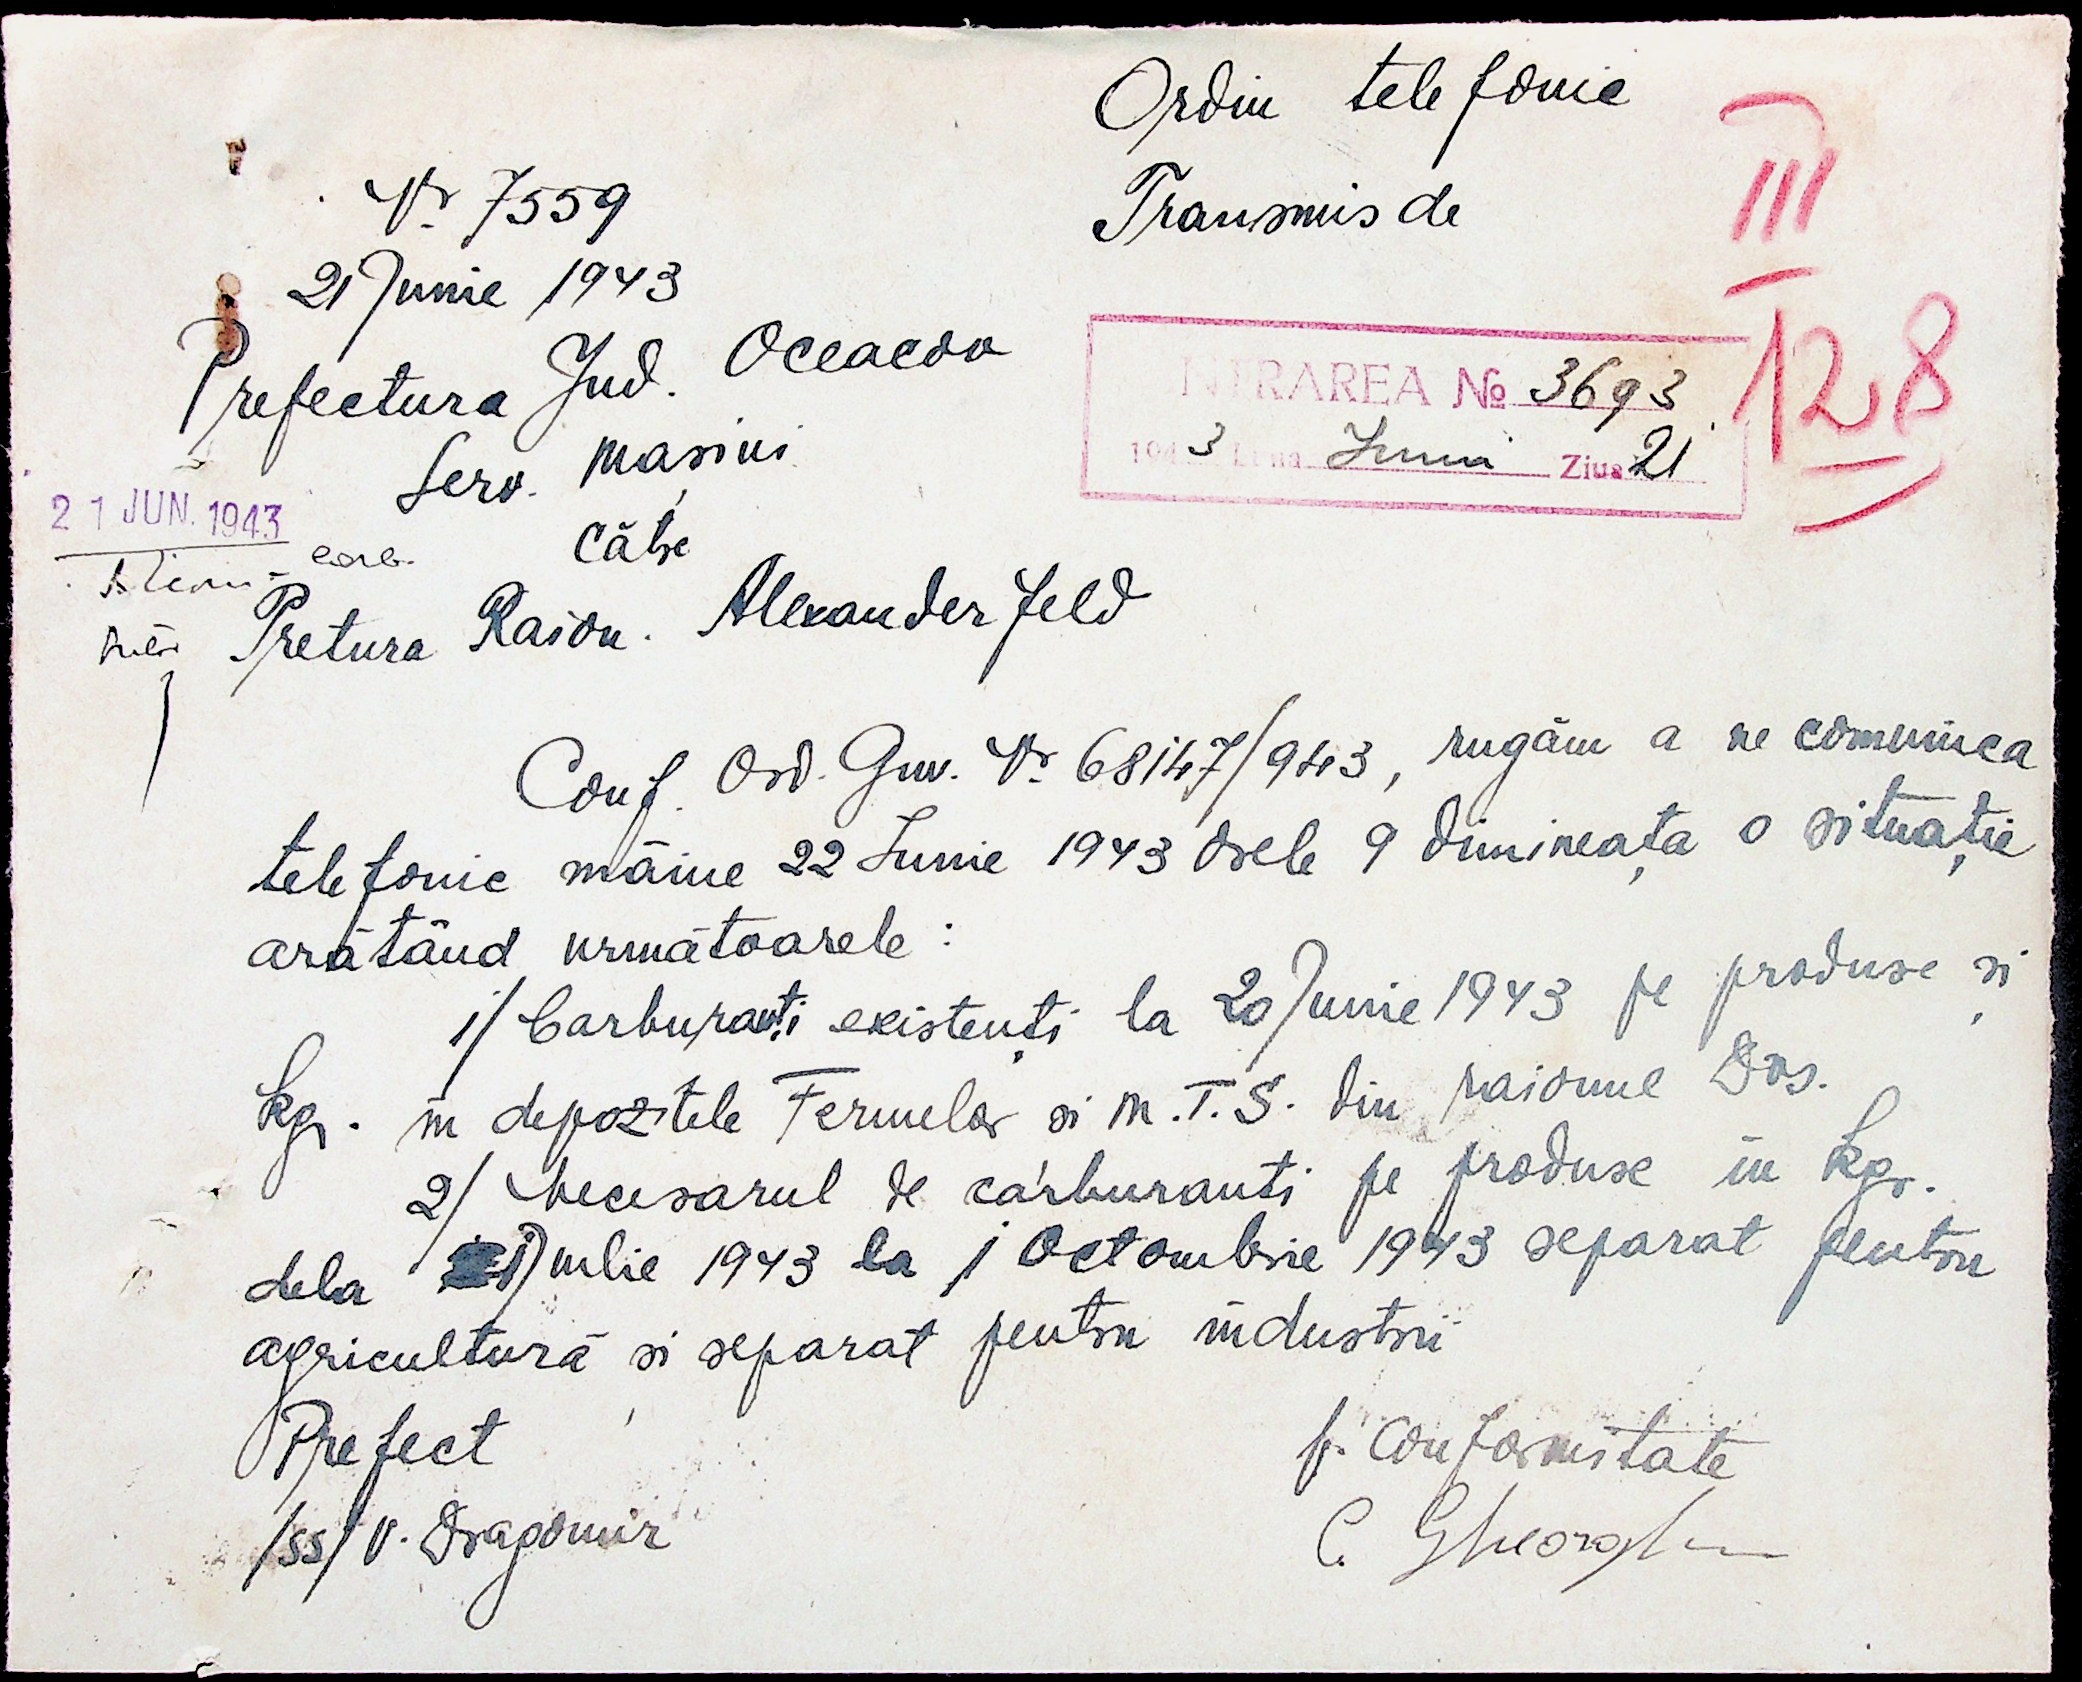 Ordin telefonic
Transmis de
III
128
Nr 7559
21 Junie 1943
Prefectura Jud. Oceacov
Serv. Masini
INTRAREA No 3693
1943 Luna Iunii Ziua 21
21 JUN. 1943
către
Pretura Raion. Alexanderfeld
Conf. Ord. Guv. Nr 68147/943, rugăm a ne comunica
telefonic mâine 22 Iunie 1943 orele 9 dimineața o situație
arătând următoarele:
1/ Carburanți existenți la 20 Junie 1943 pe produse și
kgr. in depozitele Fermelor si M.T.S. din raionul Dvs.
2/ Necesarul de carburanti pe produse in kgr.
dela 1 Julie 1943 la 1 Octombrie 1943 separat pentru
agricultură și separat pentru industrii
Prefect
/ss/ V. Dragomir
p. Conformitate
C. Gheorghe